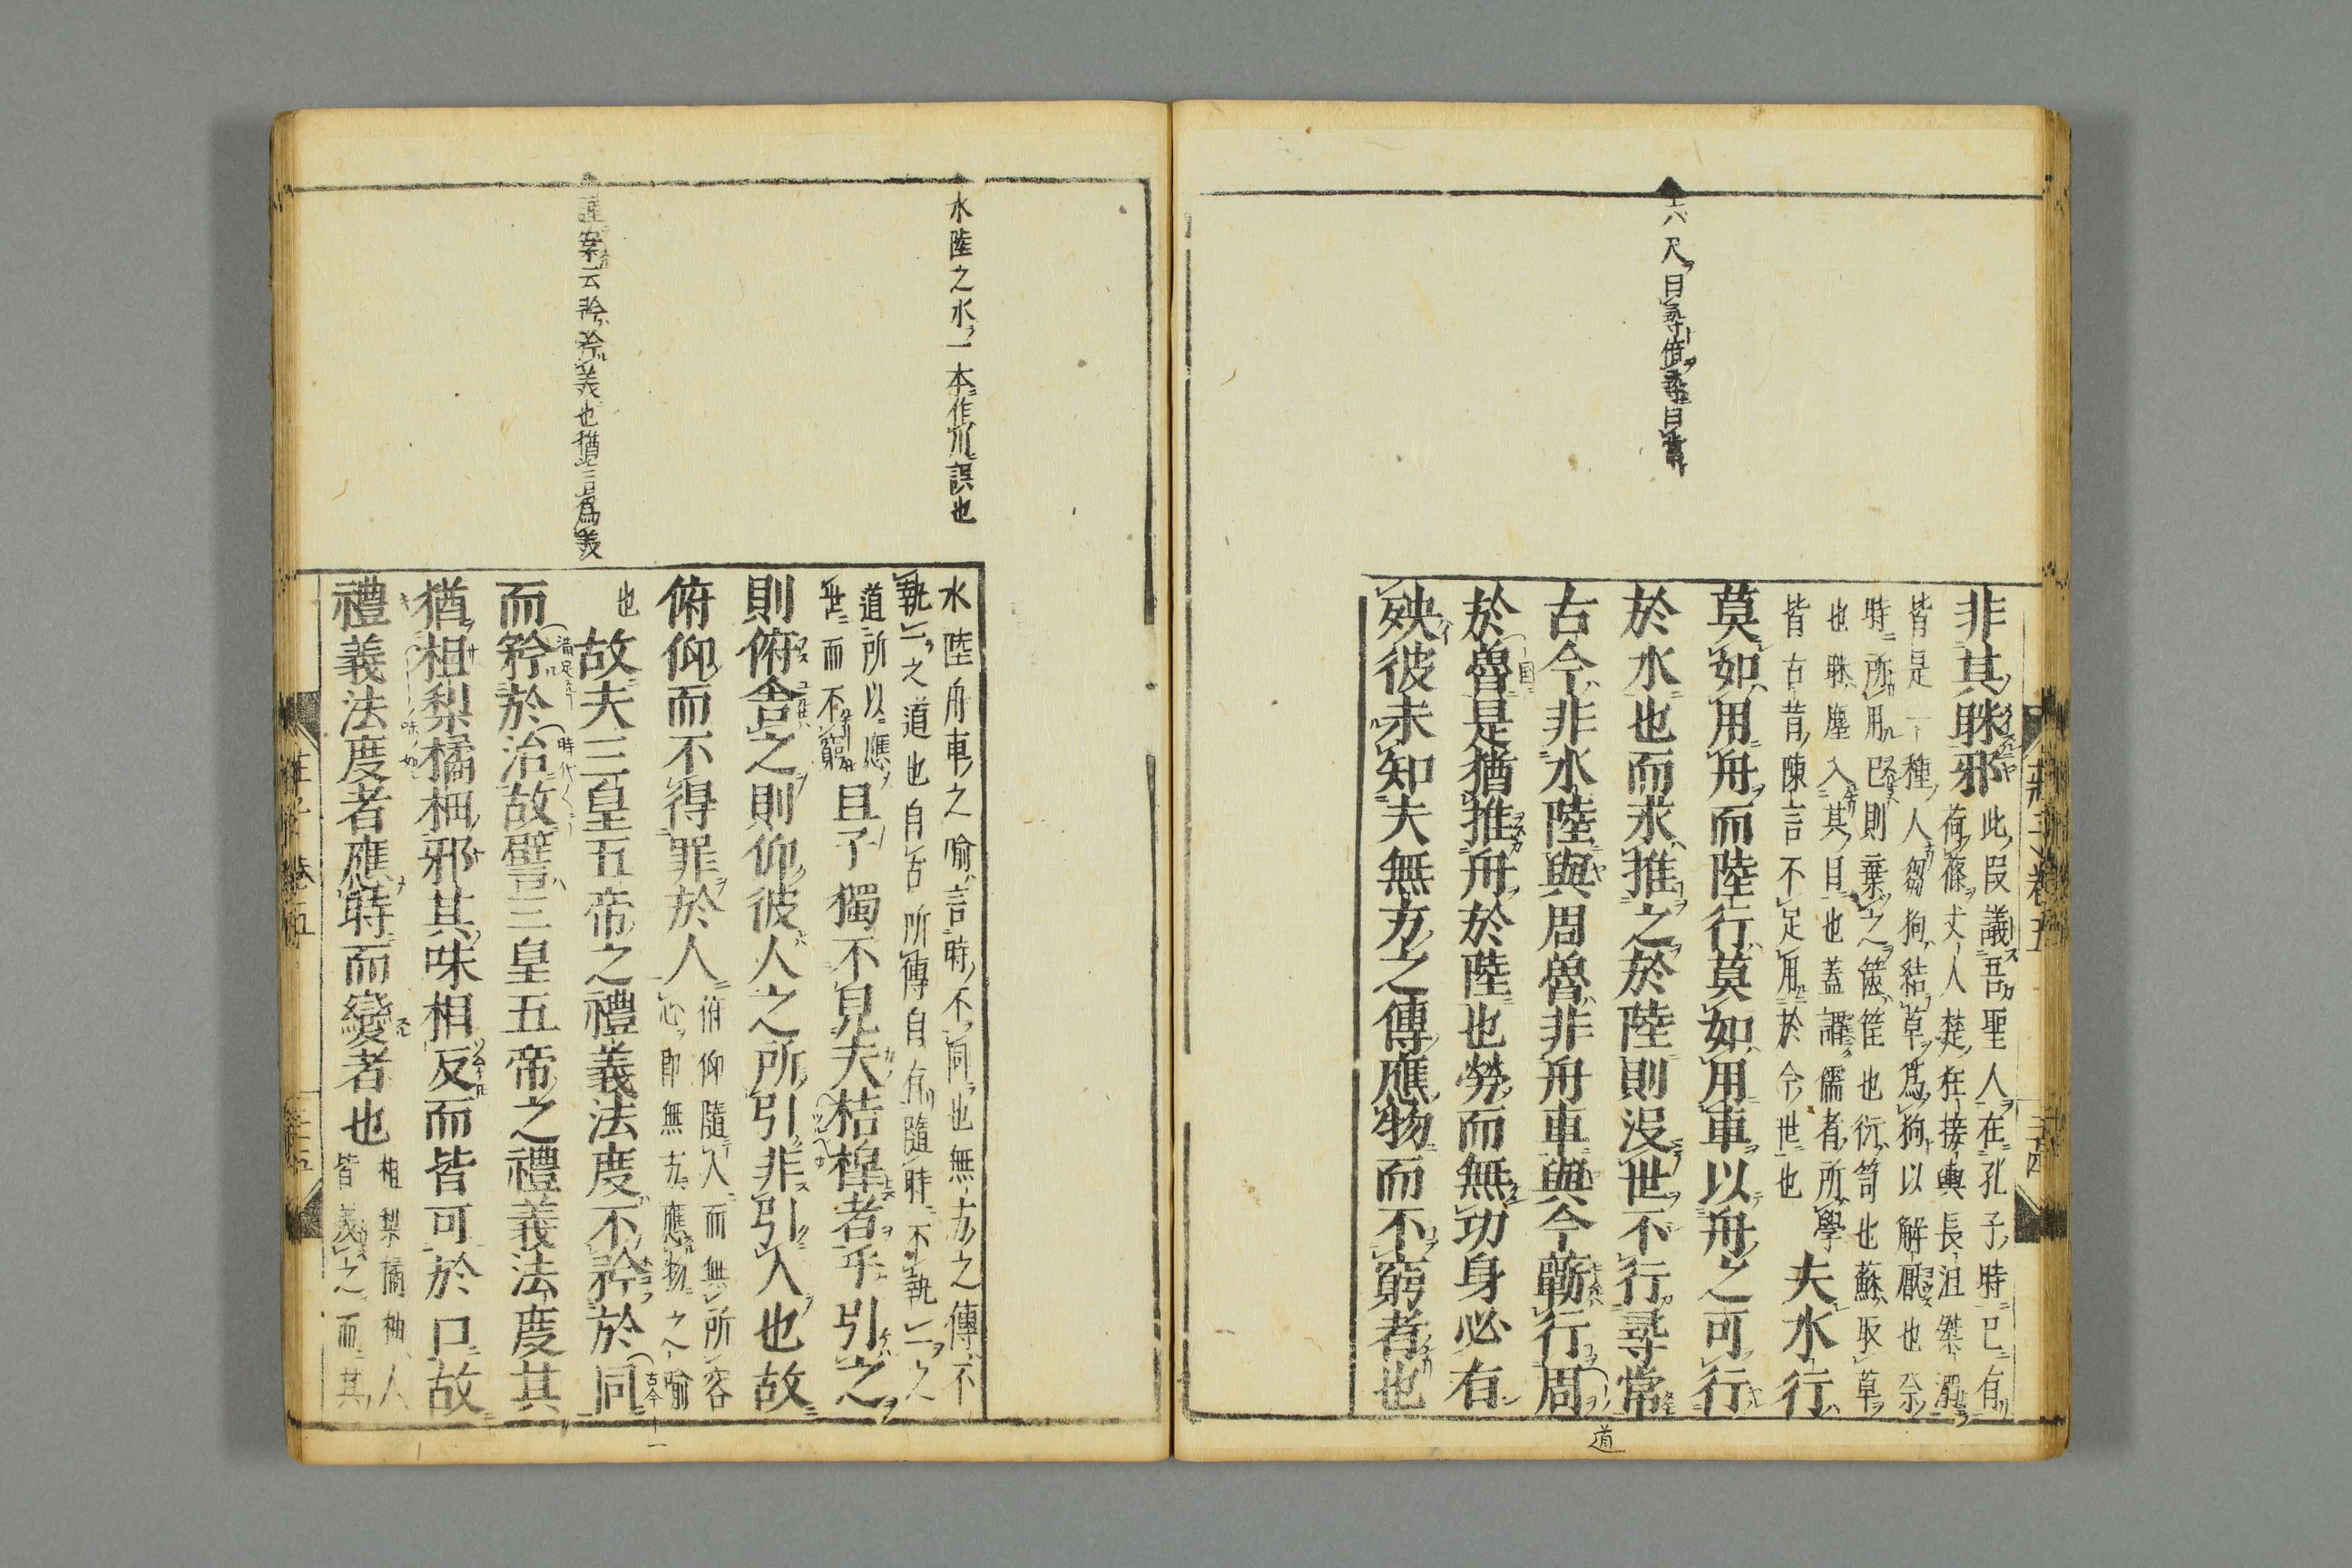 六尺曰尋倍尋曰常
非其眯邪
此段議吾聖人在孔子時已有
荷蓧丈人楚狂接輿長沮桀溺
皆是一種人芻狗結草爲狗以解厭也奈
時所用已則棄之篋筐也衍笥也蘇取草
也眯塵入其目也蓋謂儒者所學
皆古昔陳言不足用於今世也
夫水行
莫如用舟而陸行莫如用車以舟之可行
於水也而求推之於陸則沒世不行尋常
古今非水陸與周魯非舟車與今蘄行周
於魯是猶推舟於陸也勞而無功身必有
殃彼未知夫無方之傳應物而不窮者也
道
莊子 卷五
水陸之水一本作川誤也
案云矜矜義也猶言爲美
水陸舟車之喻言時不同也無方之傳不
執一之道也自古所傳自有隨時不執一之
道所以應
無而不窮
且子獨不見夫桔槹者乎引之
則俯舍之則仰彼人之所引非引人也故
俯仰而不得罪於人
俯仰隨人而無所容
心即無方應物之喻
也
故夫三皇五帝之禮義法度不矜於同
而矜於治故譬三皇五帝之禮義法度其
猶柤梨橘柚邪其味相反而皆可於口故
禮義法度者應時而變者也
柤梨橘柚人
皆美之而其
莊子 卷五